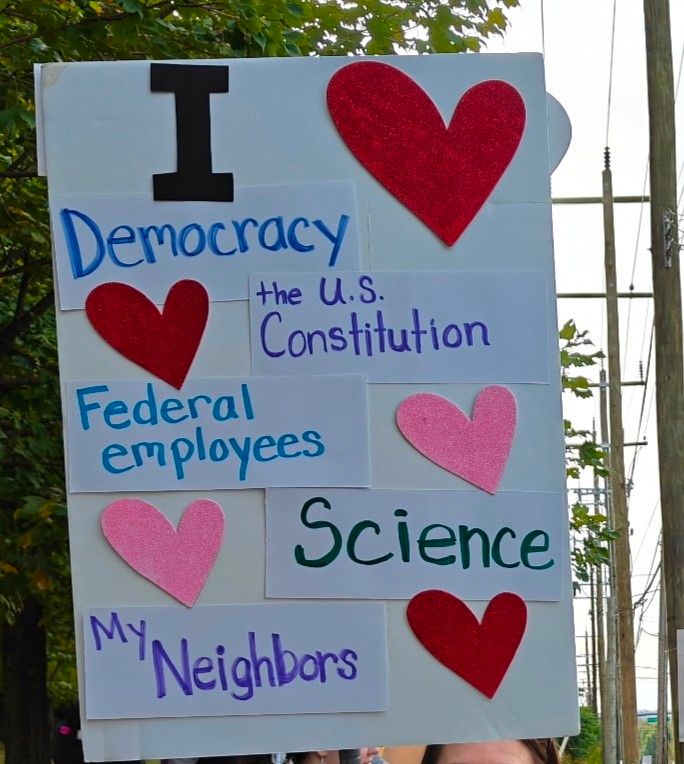 I
Democracy
the U.S.
Constitution
Federal
employees
Science
My
Neighbors